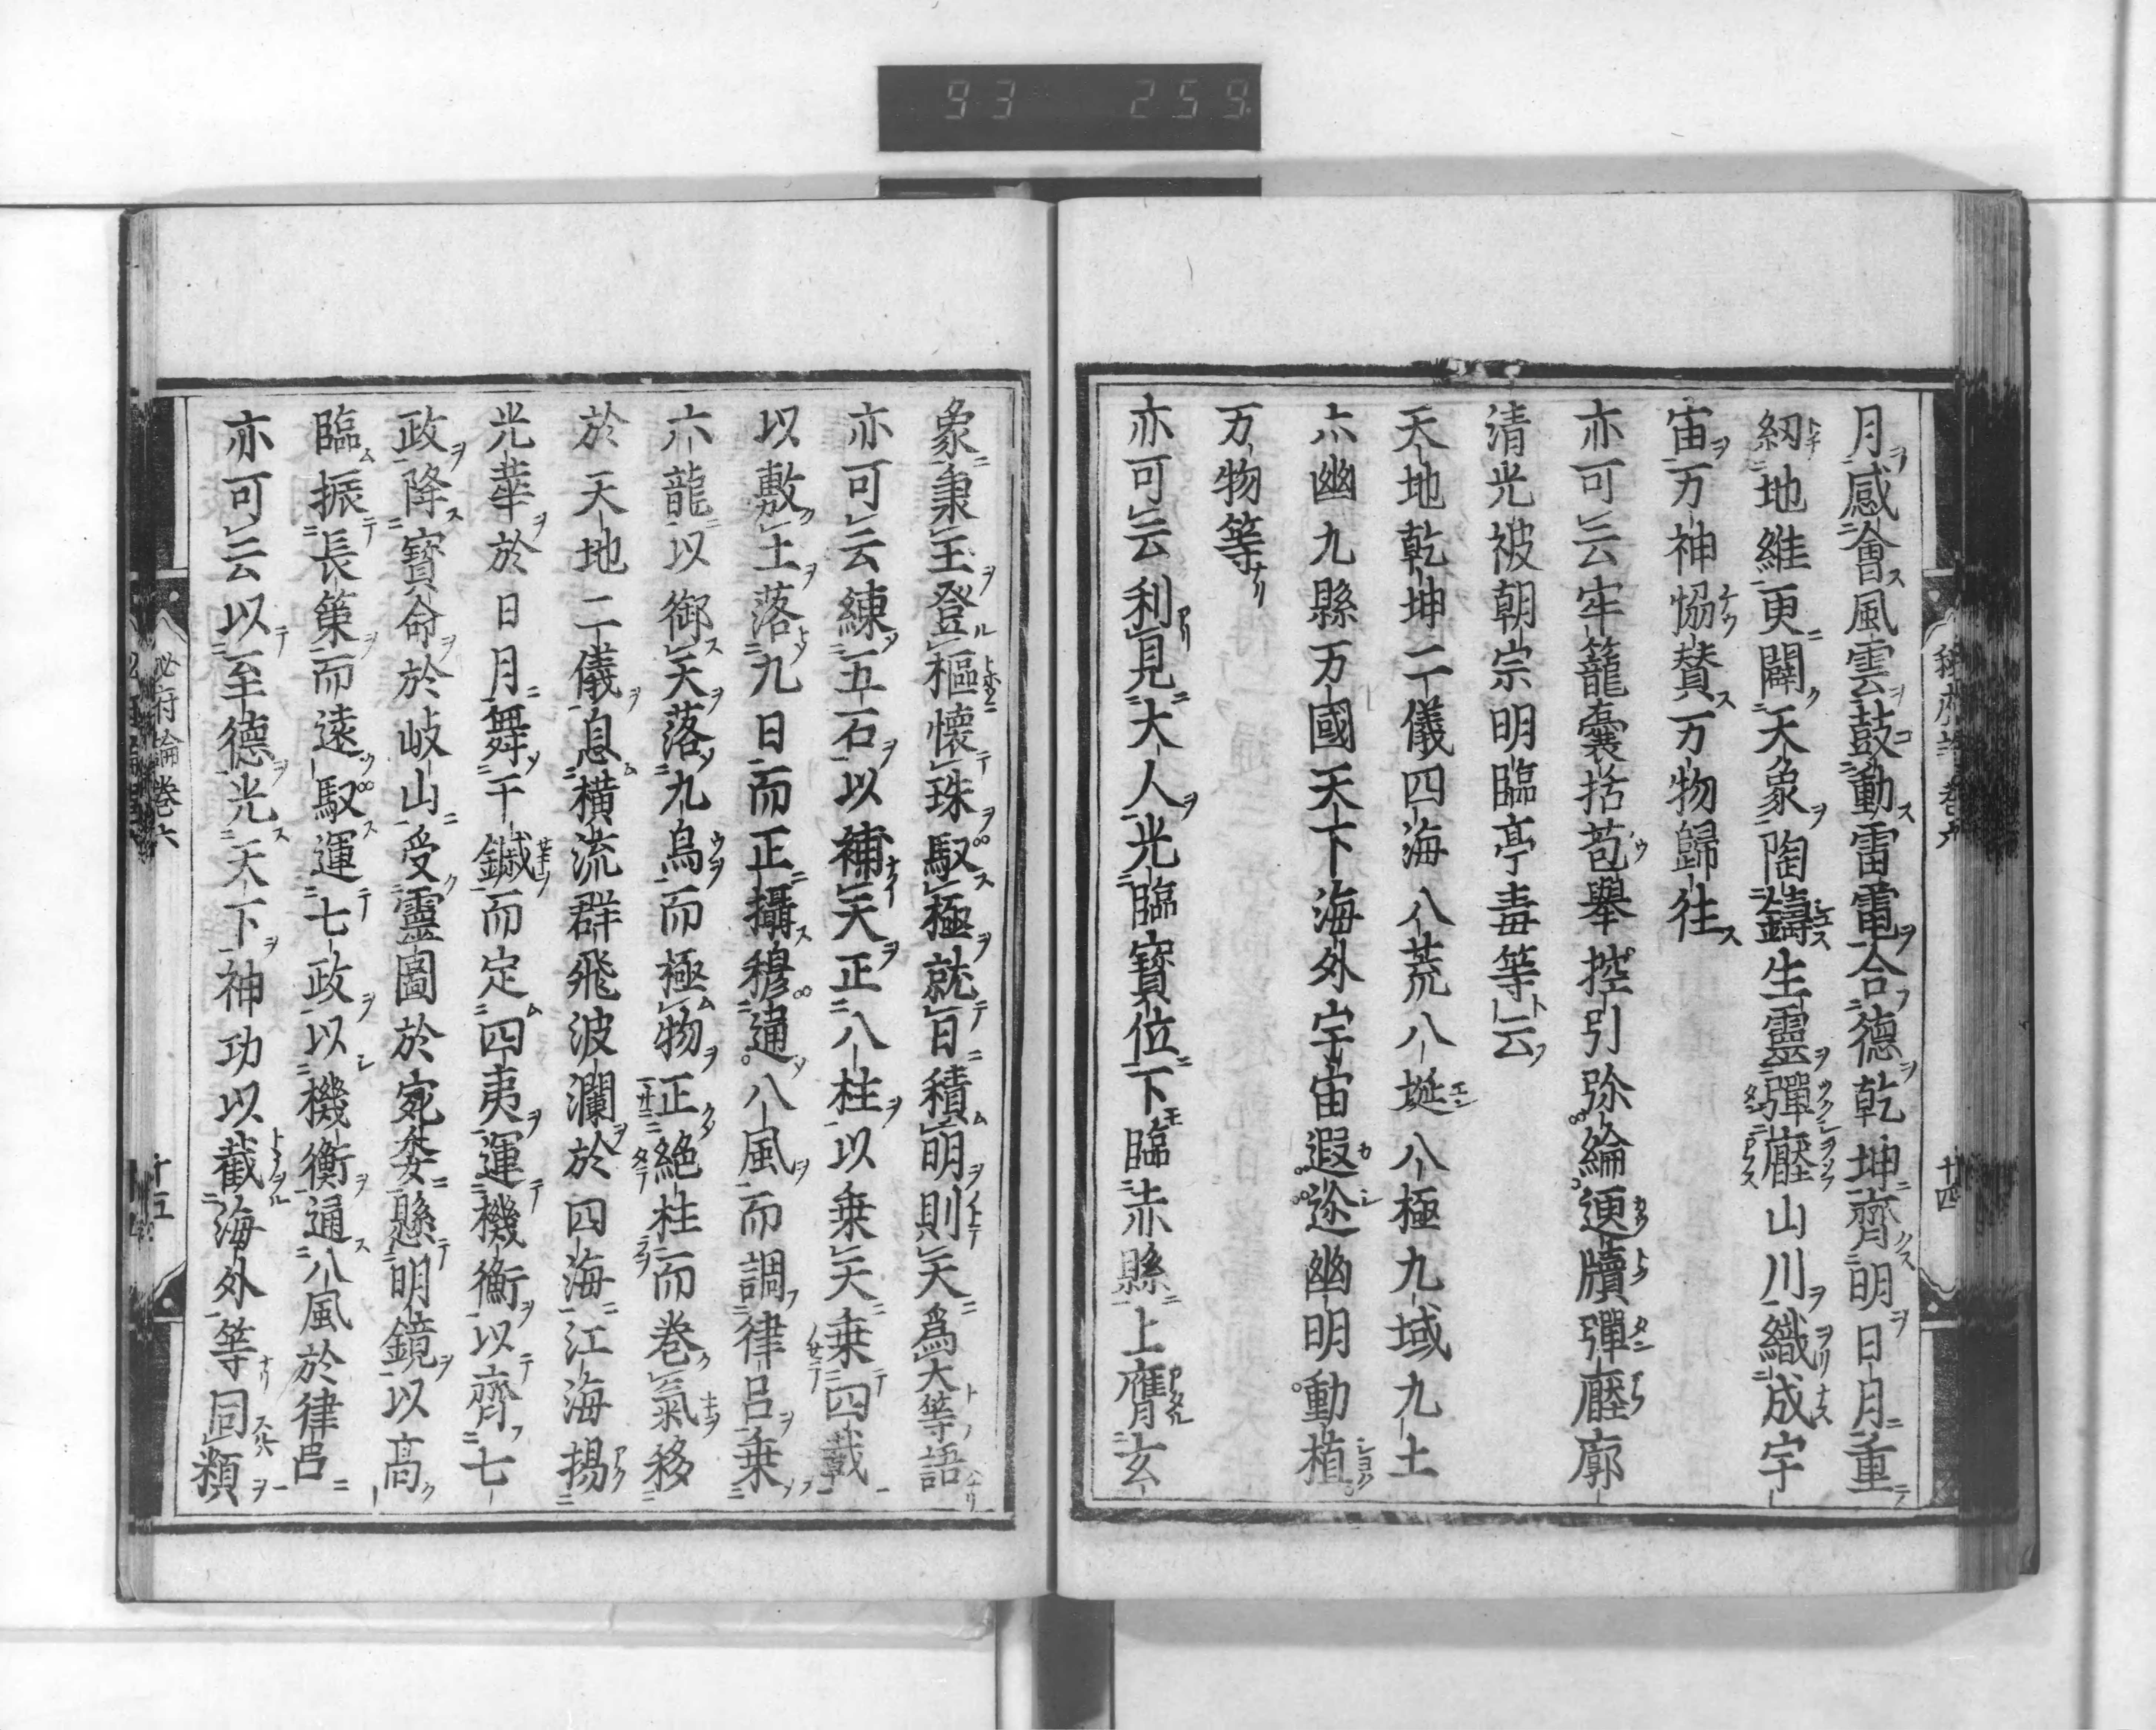 93 259
月感會風雲鼓動雷電合德乾坤齊明日月重
紉地維更闢天象陶鑄生靈彈壓山川織成宇
宙万神恊賛万物歸往
亦可云牢籠囊括苞舉控引弥綸更牘彈壓廓
清光被朝宗明臨亭毒等云
天地乾坤二儀四海八荒八埏八極九域九土
六幽九縣万國天下海外宇宙遐迩幽明動植
万物等
亦可云利見大人光臨寶位下臨赤縣上膺玄
象秉王登樞懷珠馭極就日積明則天爲大等語
亦可云練五石以補天正八柱以乗天乗四載
以敷土落九日而正攝穆通八風而調律呂乗
六龍以御天落九烏而極物正絶柱而巻氣移
於天地二儀息横流群飛波瀾於四海江海揚
光華於日月舞干鏚而定四夷運機衡以齊七
政降寶命於岐山受靈圖於宛委懸明鏡以高
臨振長策而遠馭運七政以機衡通八風於律呂
亦可云以至德光天下神功以截海外等同類
必府論巻六
十五
十四